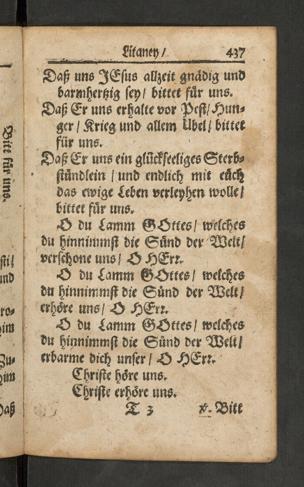 Litaney / 437
Daß uns JEsus allzeit gnädig und
barmhertzig sey / bittet für uns.
Daß Er uns erhalte vor Pest / Hun-
ger / Krieg und allem Übel / bittet
für uns.
Daß Er uns ein glückseeliges Sterb-
stündlein / und endlich mit euch
das ewige Leben verleyhen wolle /
bittet für uns.
O du Lamm GOttes / welches
du hinnimmst die Sünd der Welt /
verschone uns / O HErr.
O du Lamm GOttes / welches
du hinnimmst die Sünd der Welt /
erhöre uns / O HErr.
O du Lamm GOttes / welches
du hinnimmst die Sünd der Welt /
erbarme dich unser / O HErr.
Christe höre uns.
Christe erhöre uns.
T 3 Bitt
Bitt für uns.